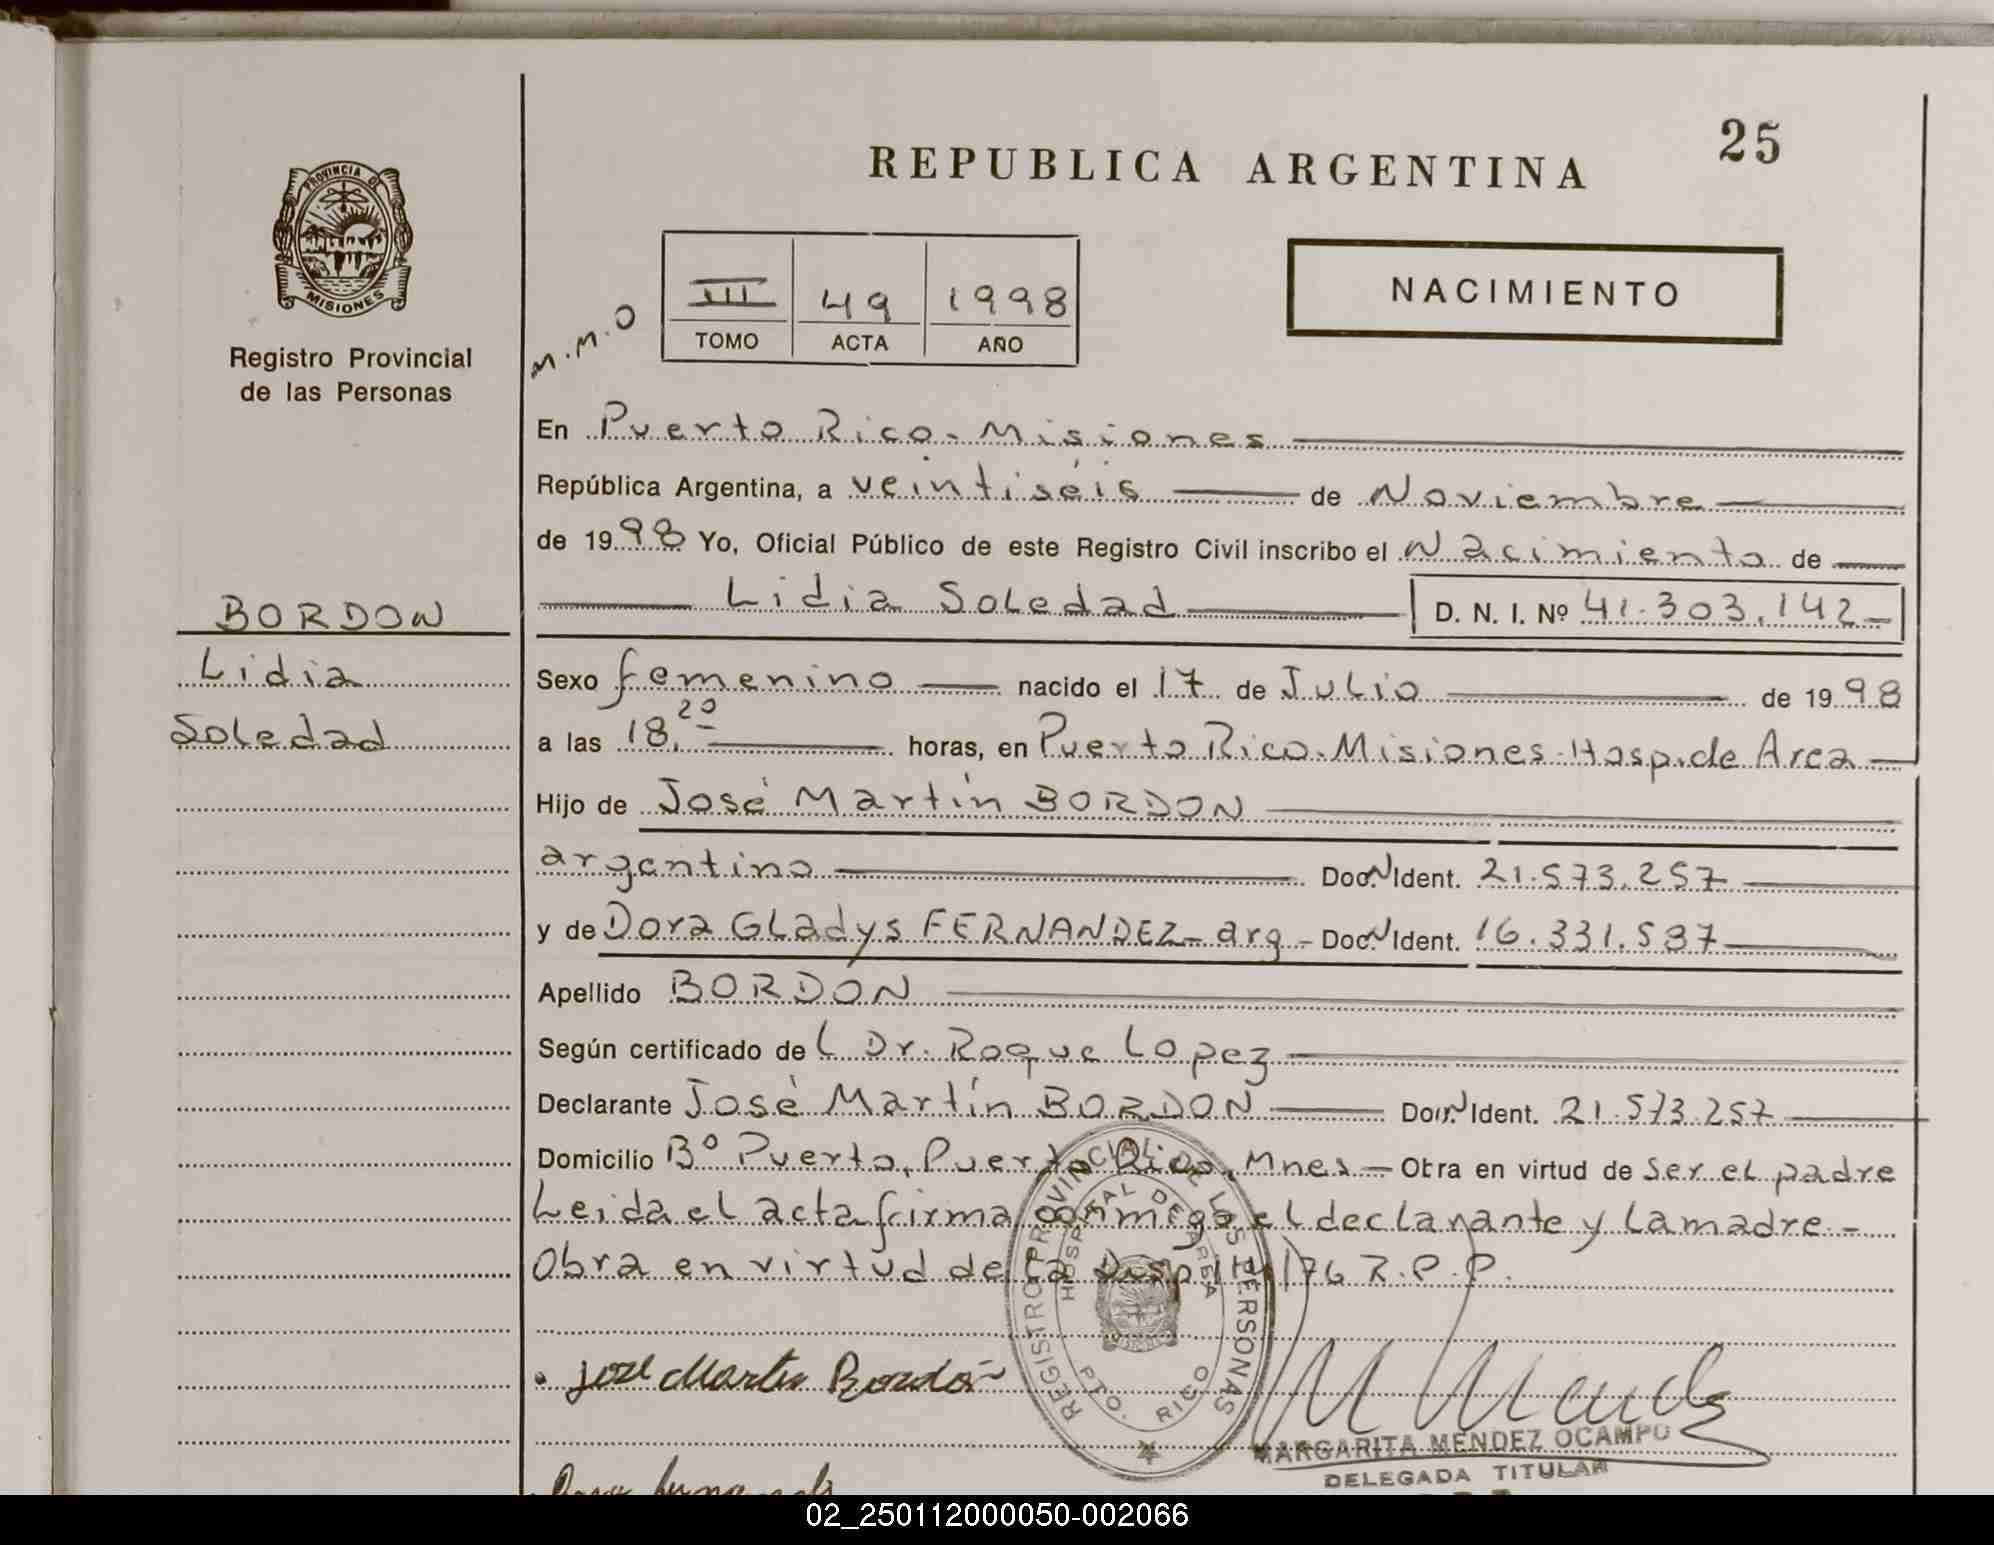 25
REPUBLICA ARGENTINA
PROVINCIA DE
MISIONES
Registro Provincial
de las Personas
M.M.O
III 49 1998
TOMO ACTA AÑO
NACIMIENTO
En Puerto Rico. Misiones
República Argentina, a veintiséis de Noviembre
de 1998 Yo, Oficial Público de este Registro Civil inscribo el Nacimiento de
Lidia Soledad D. N. I. Nº 41.303.142
BORDON
Lidia
Soledad
Sexo femenino nacido el 17 de Julio de 1998
a las 18,20 horas, en Puerto Rico. Misiones. Hosp. de Area
Hijo de José Martín BORDON
argentino Doc. N Ident. 21.573.257
y de Dora Gladys FERNANDEZ - arg - Doc. N Ident. 16.331.537
Apellido BORDON
Según certificado del Dr. Roque Lopez
Declarante José Martín BORDON Doc. N Ident. 21.573.257
Domicilio Bº Puerto, Puerto Rico, Mnes - Obra en virtud de ser el padre
Leida el acta firma conmigo el declarante y la madre -
Obra en virtud de la Disp 76 R.P.P.
REGISTRO PROVINCIAL DE LAS PERSONAS
HOSPITAL DE AREA
PTO. RICO
José Martin Bordón
M Mendez
MARGARITA MENDEZ OCAMPO
DELEGADA TITULAR
02_250112000050-002066